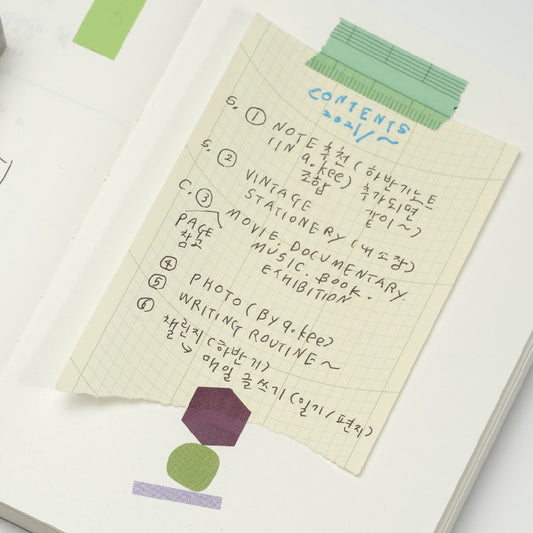 CONTENTS
2021/~
S. ① NOTE 추천 (하반기노트
(IN a.kee) 추가되면
조합 같이~)
S. ② VINTAGE
STATIONERY (내 소장)
C. ③ MOVIE. DOCUMENTARY
PAGE MUSIC. BOOK.
참고 EXHIBITION
④
⑤ PHOTO (BY a.kee)
⑥ WRITING ROUTINE~
챌린지 (하반기)
↳ 매일 글쓰기 (일기/편지)